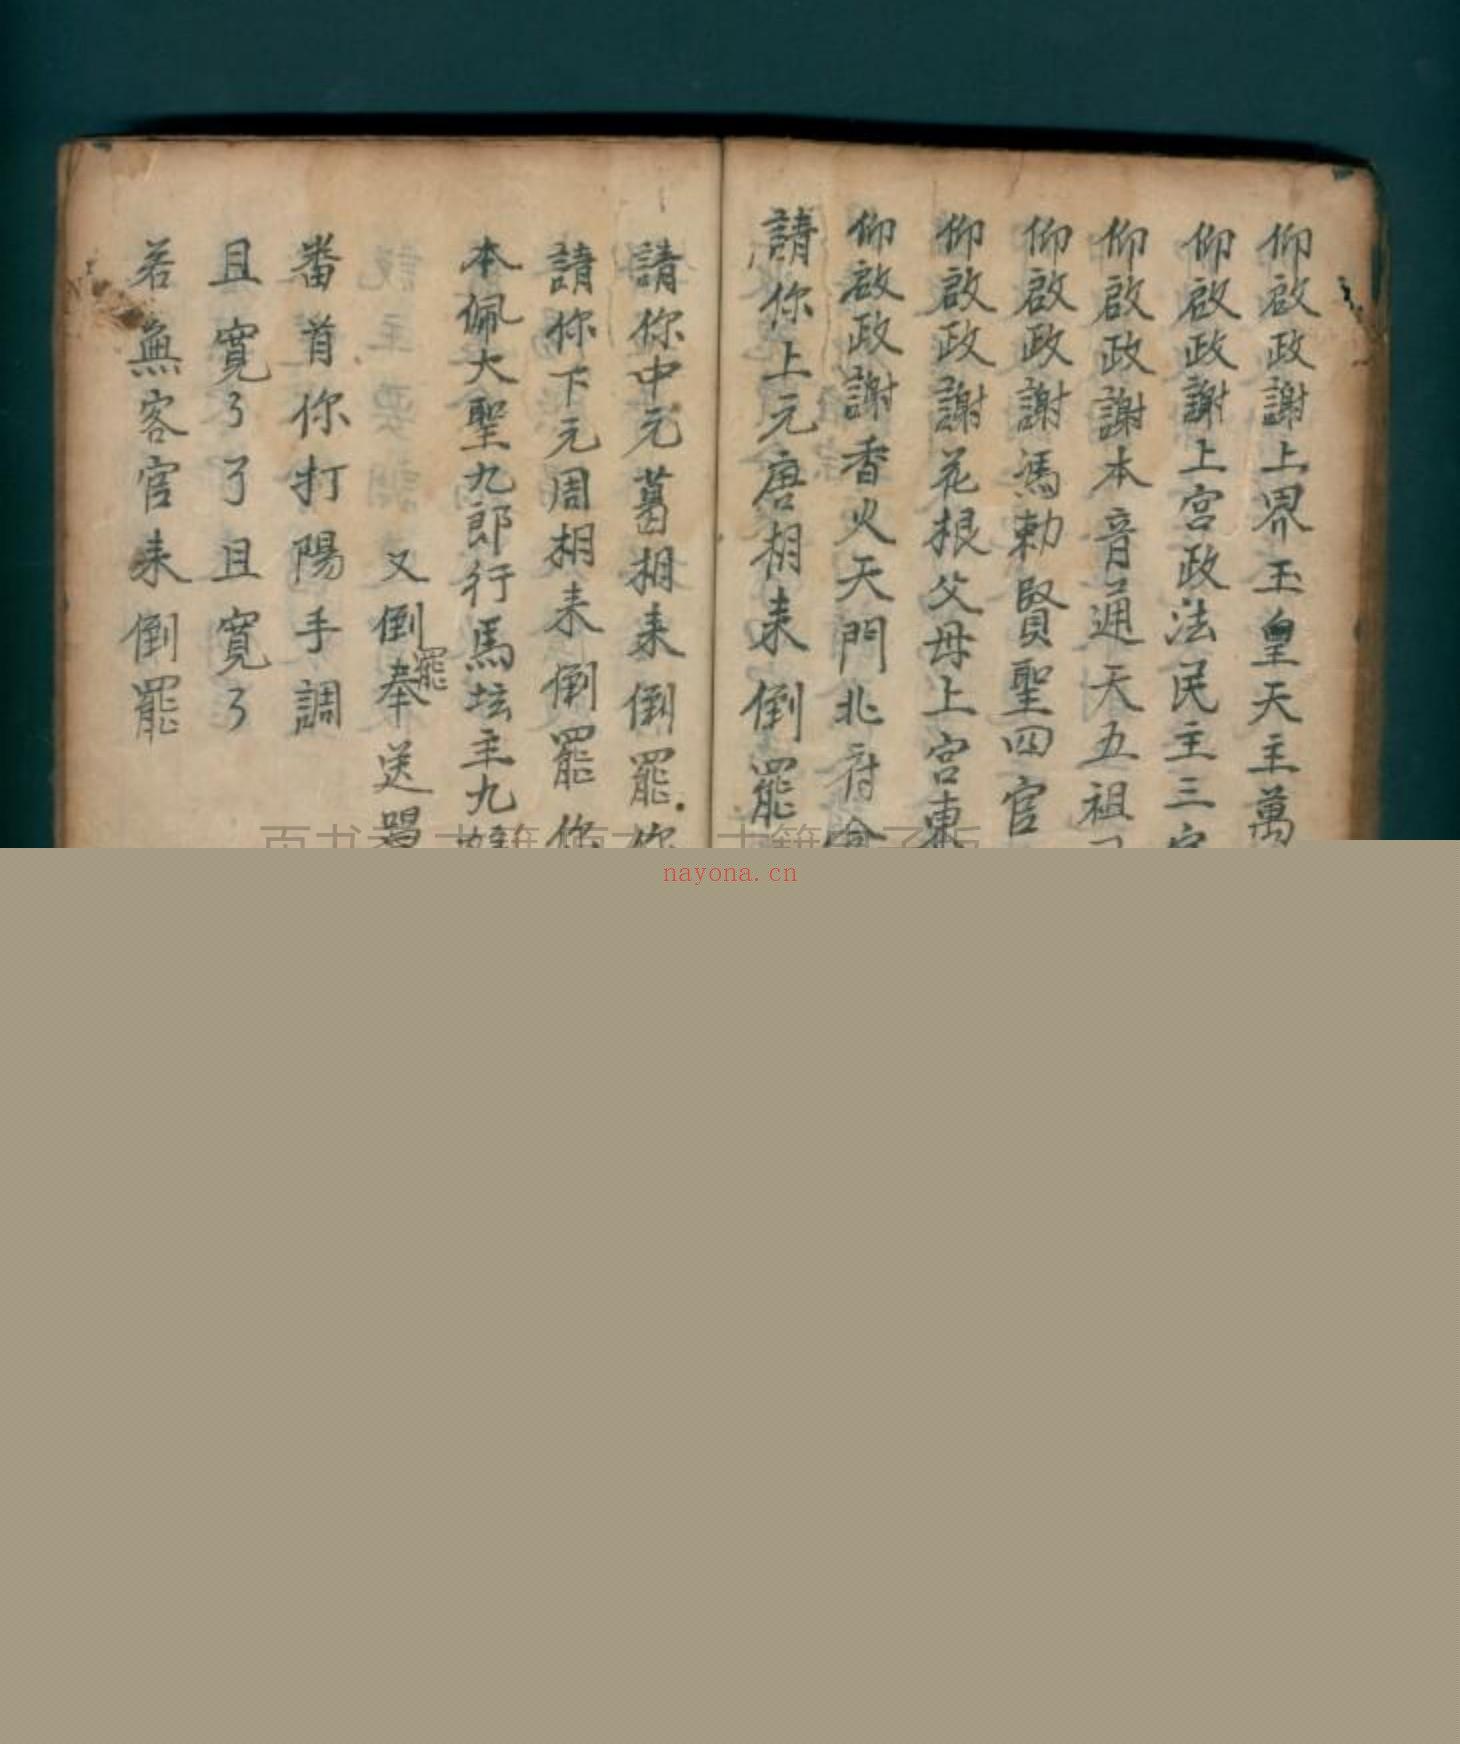 仰啟政謝上界玉皇天主萬
仰啟政謝上宮政法民主三
仰啟政謝本音通天五祖
仰啟政謝馮勅賢聖四官
仰啟政謝花根父母上宮東
仰啟政謝香火天門北府
請你上元唐相來倒罷
請你中元葛相來倒罷你
請你下元周相來倒罷你
本佩大聖九郎行馬坛主九
又倒奉罷送
番首你打陽手調
且寬了了且寬了
若無客官來倒罷
nayona.cn